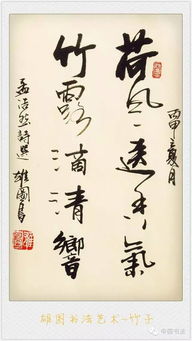 丙申夏月
荷風送香氣
竹露滴清響
孟浩然詩選 雄國書
雄国书法艺术-竹子
中国书法